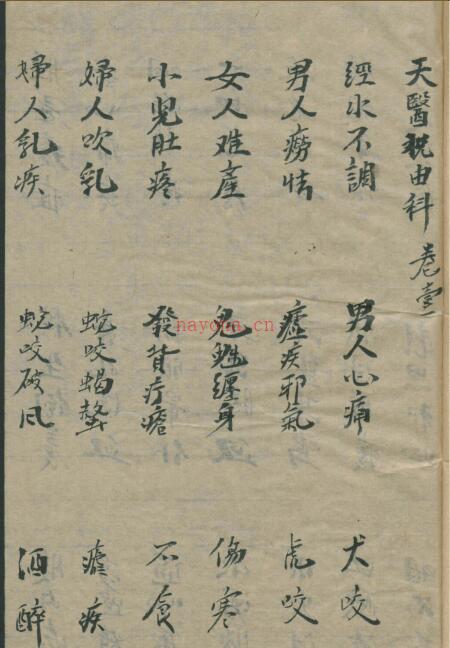 天醫祝由科 卷壹
經水不調 男人心痛 犬咬
男人癆怯 瘧疾邪氣 虎咬
女人难產 鬼魅纏身 傷寒
小兒肚疼 發背疔瘡 不食
婦人吹乳 蛇咬蝎螫 瘧疾
婦人乳疾 蛇咬破风 酒醉
nayona.cn